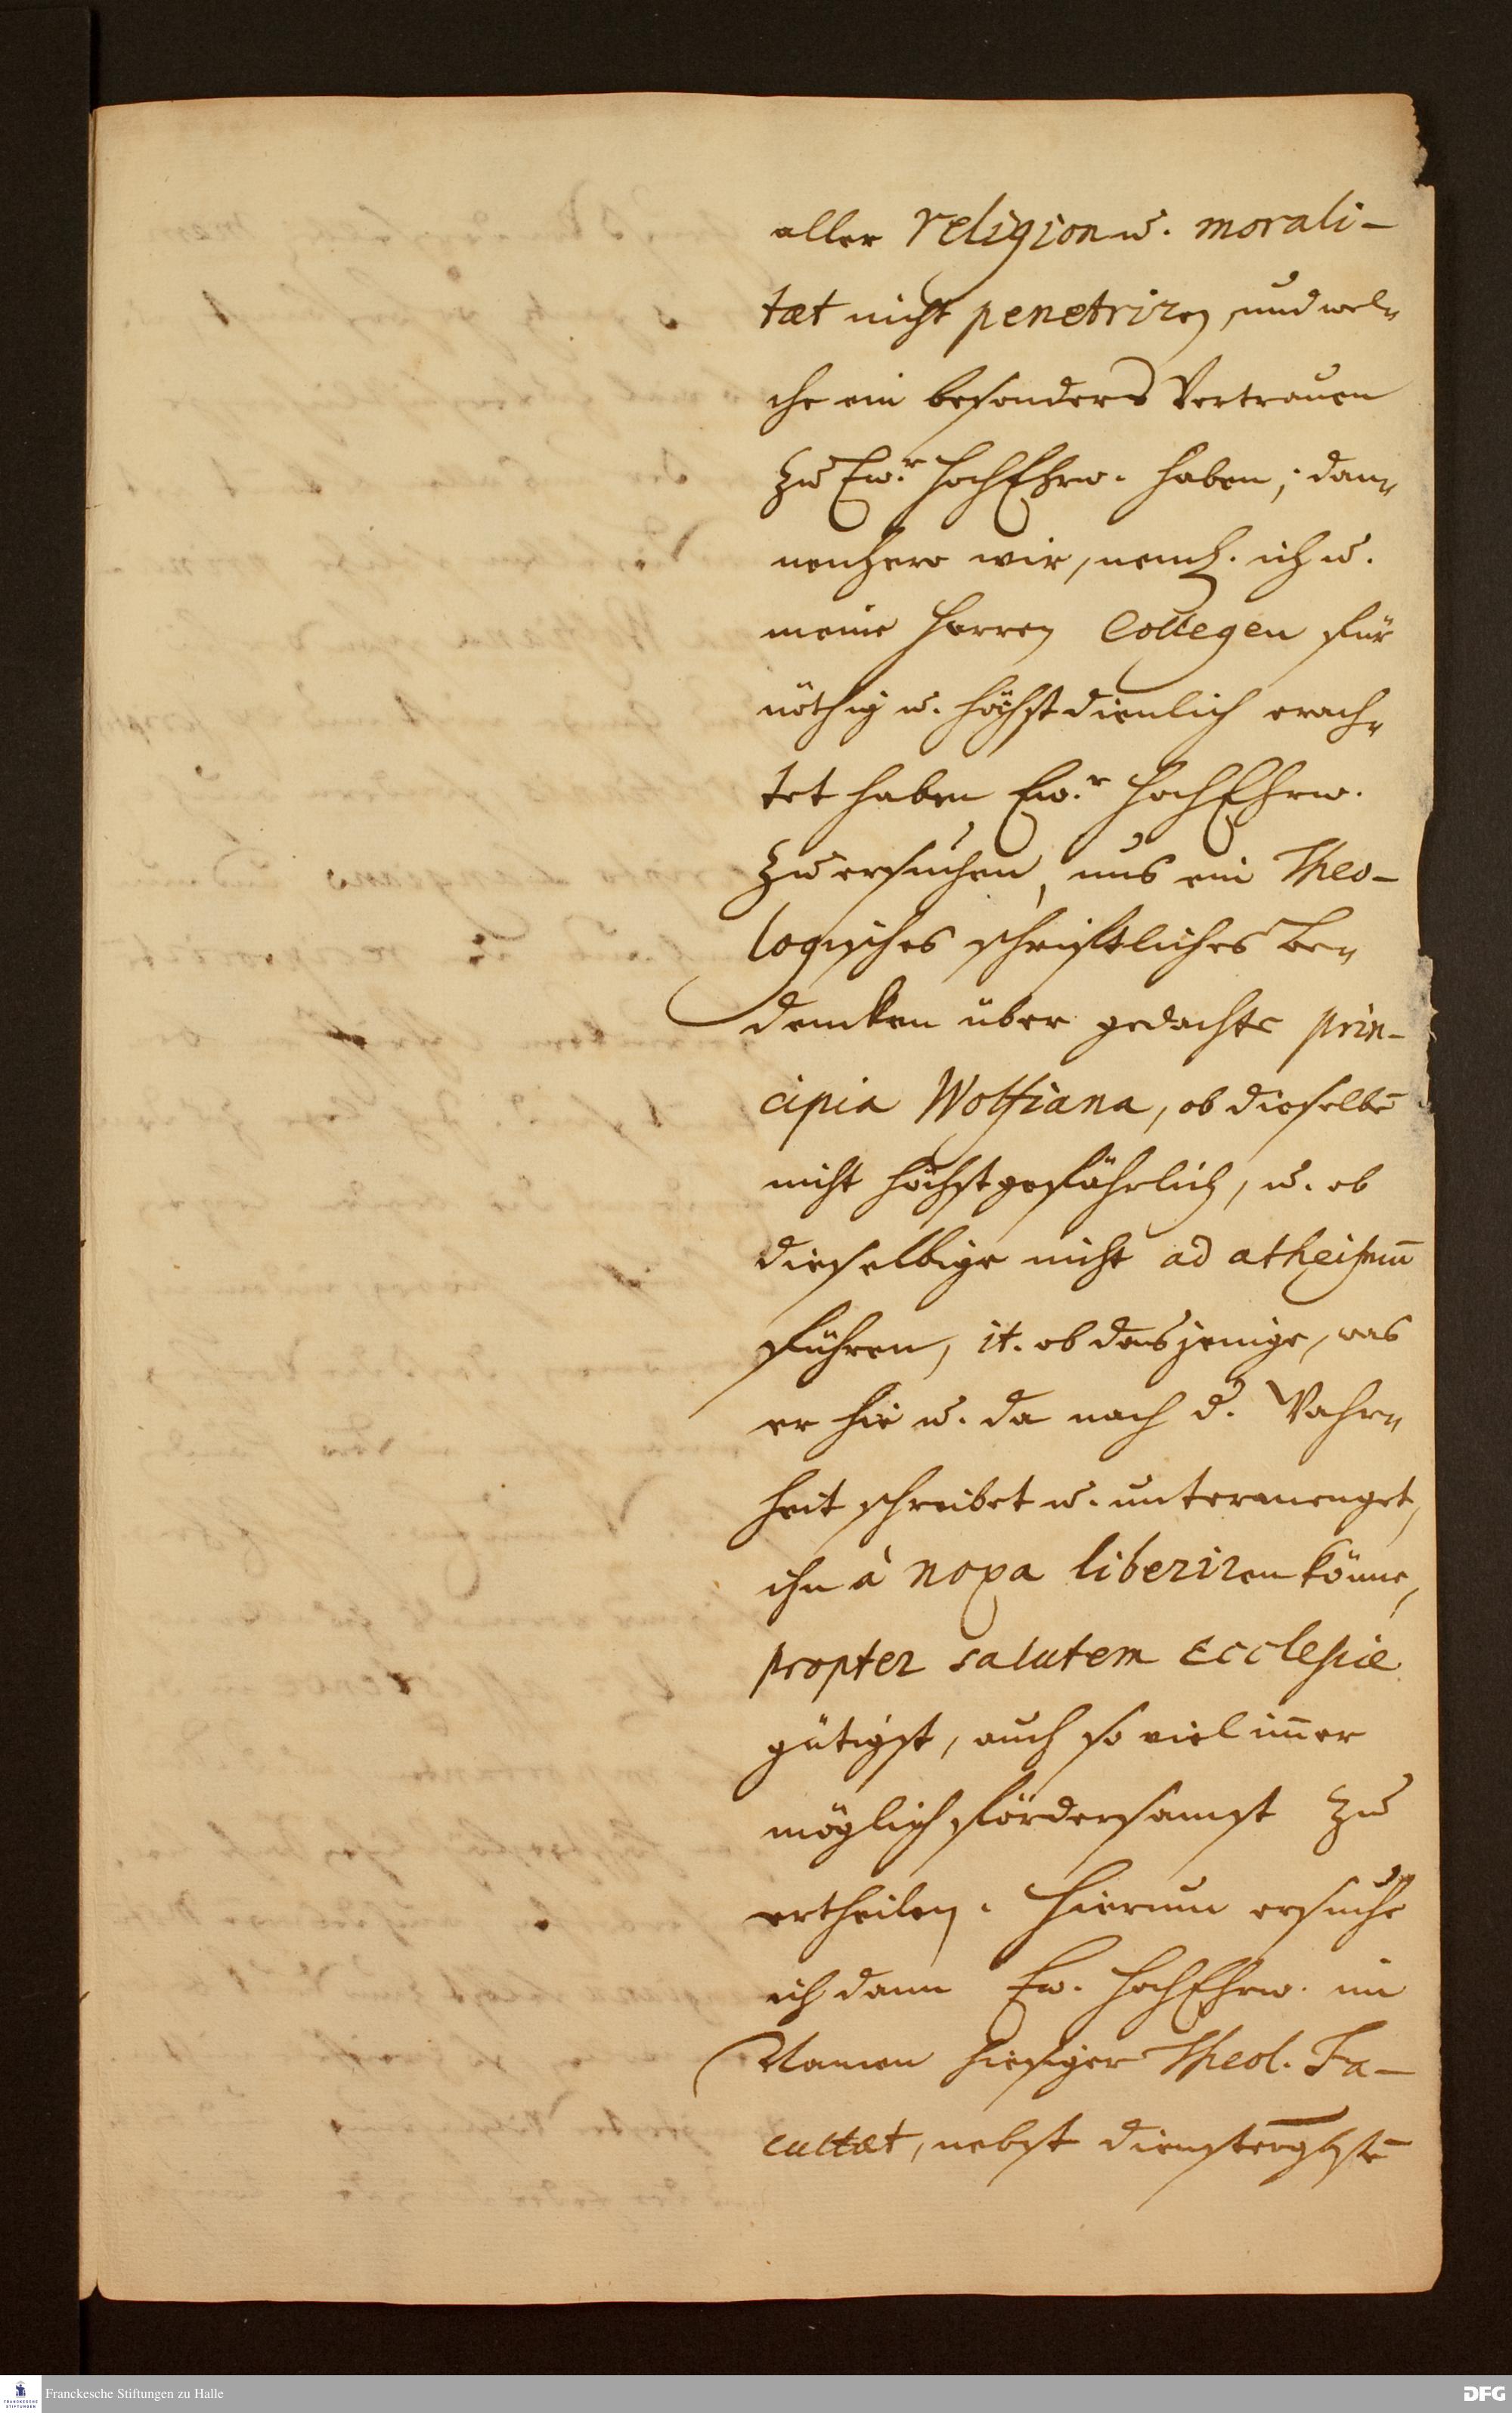 aller religion u. morali-
tæt nicht penetriren, und wel-
che ein besonders Vertrauen
zu Ew.r HochEhrw. haben; dan-
nenhero wir, neml. ich u.
meine Herren Collegen für
nöthig u. höchst dienlich erach-
tet haben Ew.r HochEhrw.
zu ersuchen, uns ein Theo-
logisches schriftliches Be-
dencken über gedachte prin-
cipia Wolfiana, ob dieselbē
nicht höchst gefährlich, u. ob
dieselbige nicht ad atheismū
führen, it. ob dasjenige, was
er hie u. da nach d. Wahr-
heit schreibet u. untermenget,
ihn à noxa liberiren könne,
propter salutem Ecclesiæ
gütigst, auch so viel im̄er
möglich fördersamst zu
ertheilen. Hierum ersuche
ich dann Ew. HochEhrw. im
Namen hiesiger Theol. Fa-
cultæt, nebst
Franckesche Stiftungen zu Halle
DFG
FRANCKESCHE
STIFTUNGEN